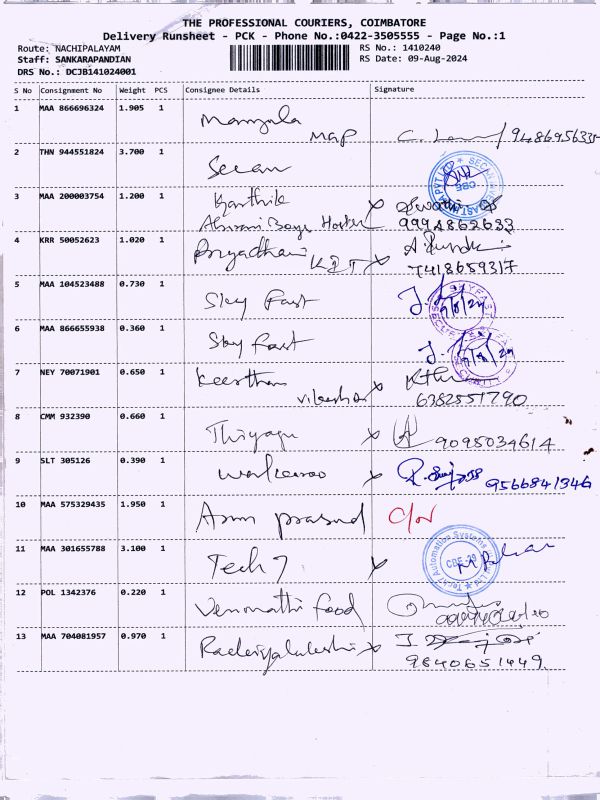 THE PROFESSIONAL COURIERS, COIMBATORE
Delivery Runsheet - PCK - Phone No.:0422-3505555 - Page No.:1
Route: NACHIPALAYAM
RS No.: 1410240
Staff: SANKARAPANDIAN
RS Date: 09-Aug-2024
DRS No.: DCJB141024001
S No Consignment No Weight PCS Consignee Details Signature
1 MAA 866696324 1.905 1 Manjula
MGP
2 THN 944551824 3.700 1 Secan
3 MAA 200003754 1.200 1 Karthik
Boys Hostel 9994862633
4 KRR 50052623 1.020 1
7418659317
5 MAA 104523488 0.730 1 Sky Fast 9/8/24
6 MAA 866655938 0.360 1 Sky Fast 9/8/24
7 NEY 70071901 0.650 1 Keerthan
6382551790
8 CMM 932390 0.660 1 Thiyagu 9095034614
9 SLT 305126 0.390 1 9566841346
10 MAA 575329435 1.950 1 Arun prasad
11 MAA 301655788 3.100 1 Tech 7
12 POL 1342376 0.220 1 Venmathi Food
13 MAA 704081957 0.970 1
9840651449